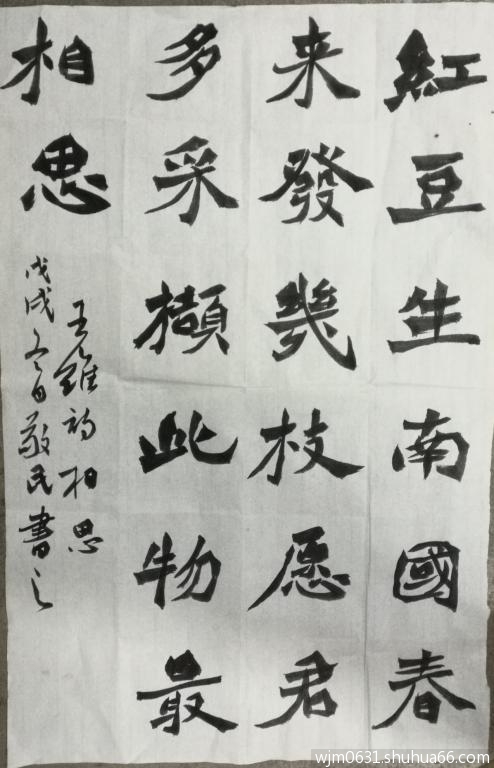 紅豆生南國春
来發幾枝愿君
多采擷此物最
相思
王維詩相思
戊戌冬日敬民書之
wjm0631.shuhua66.com